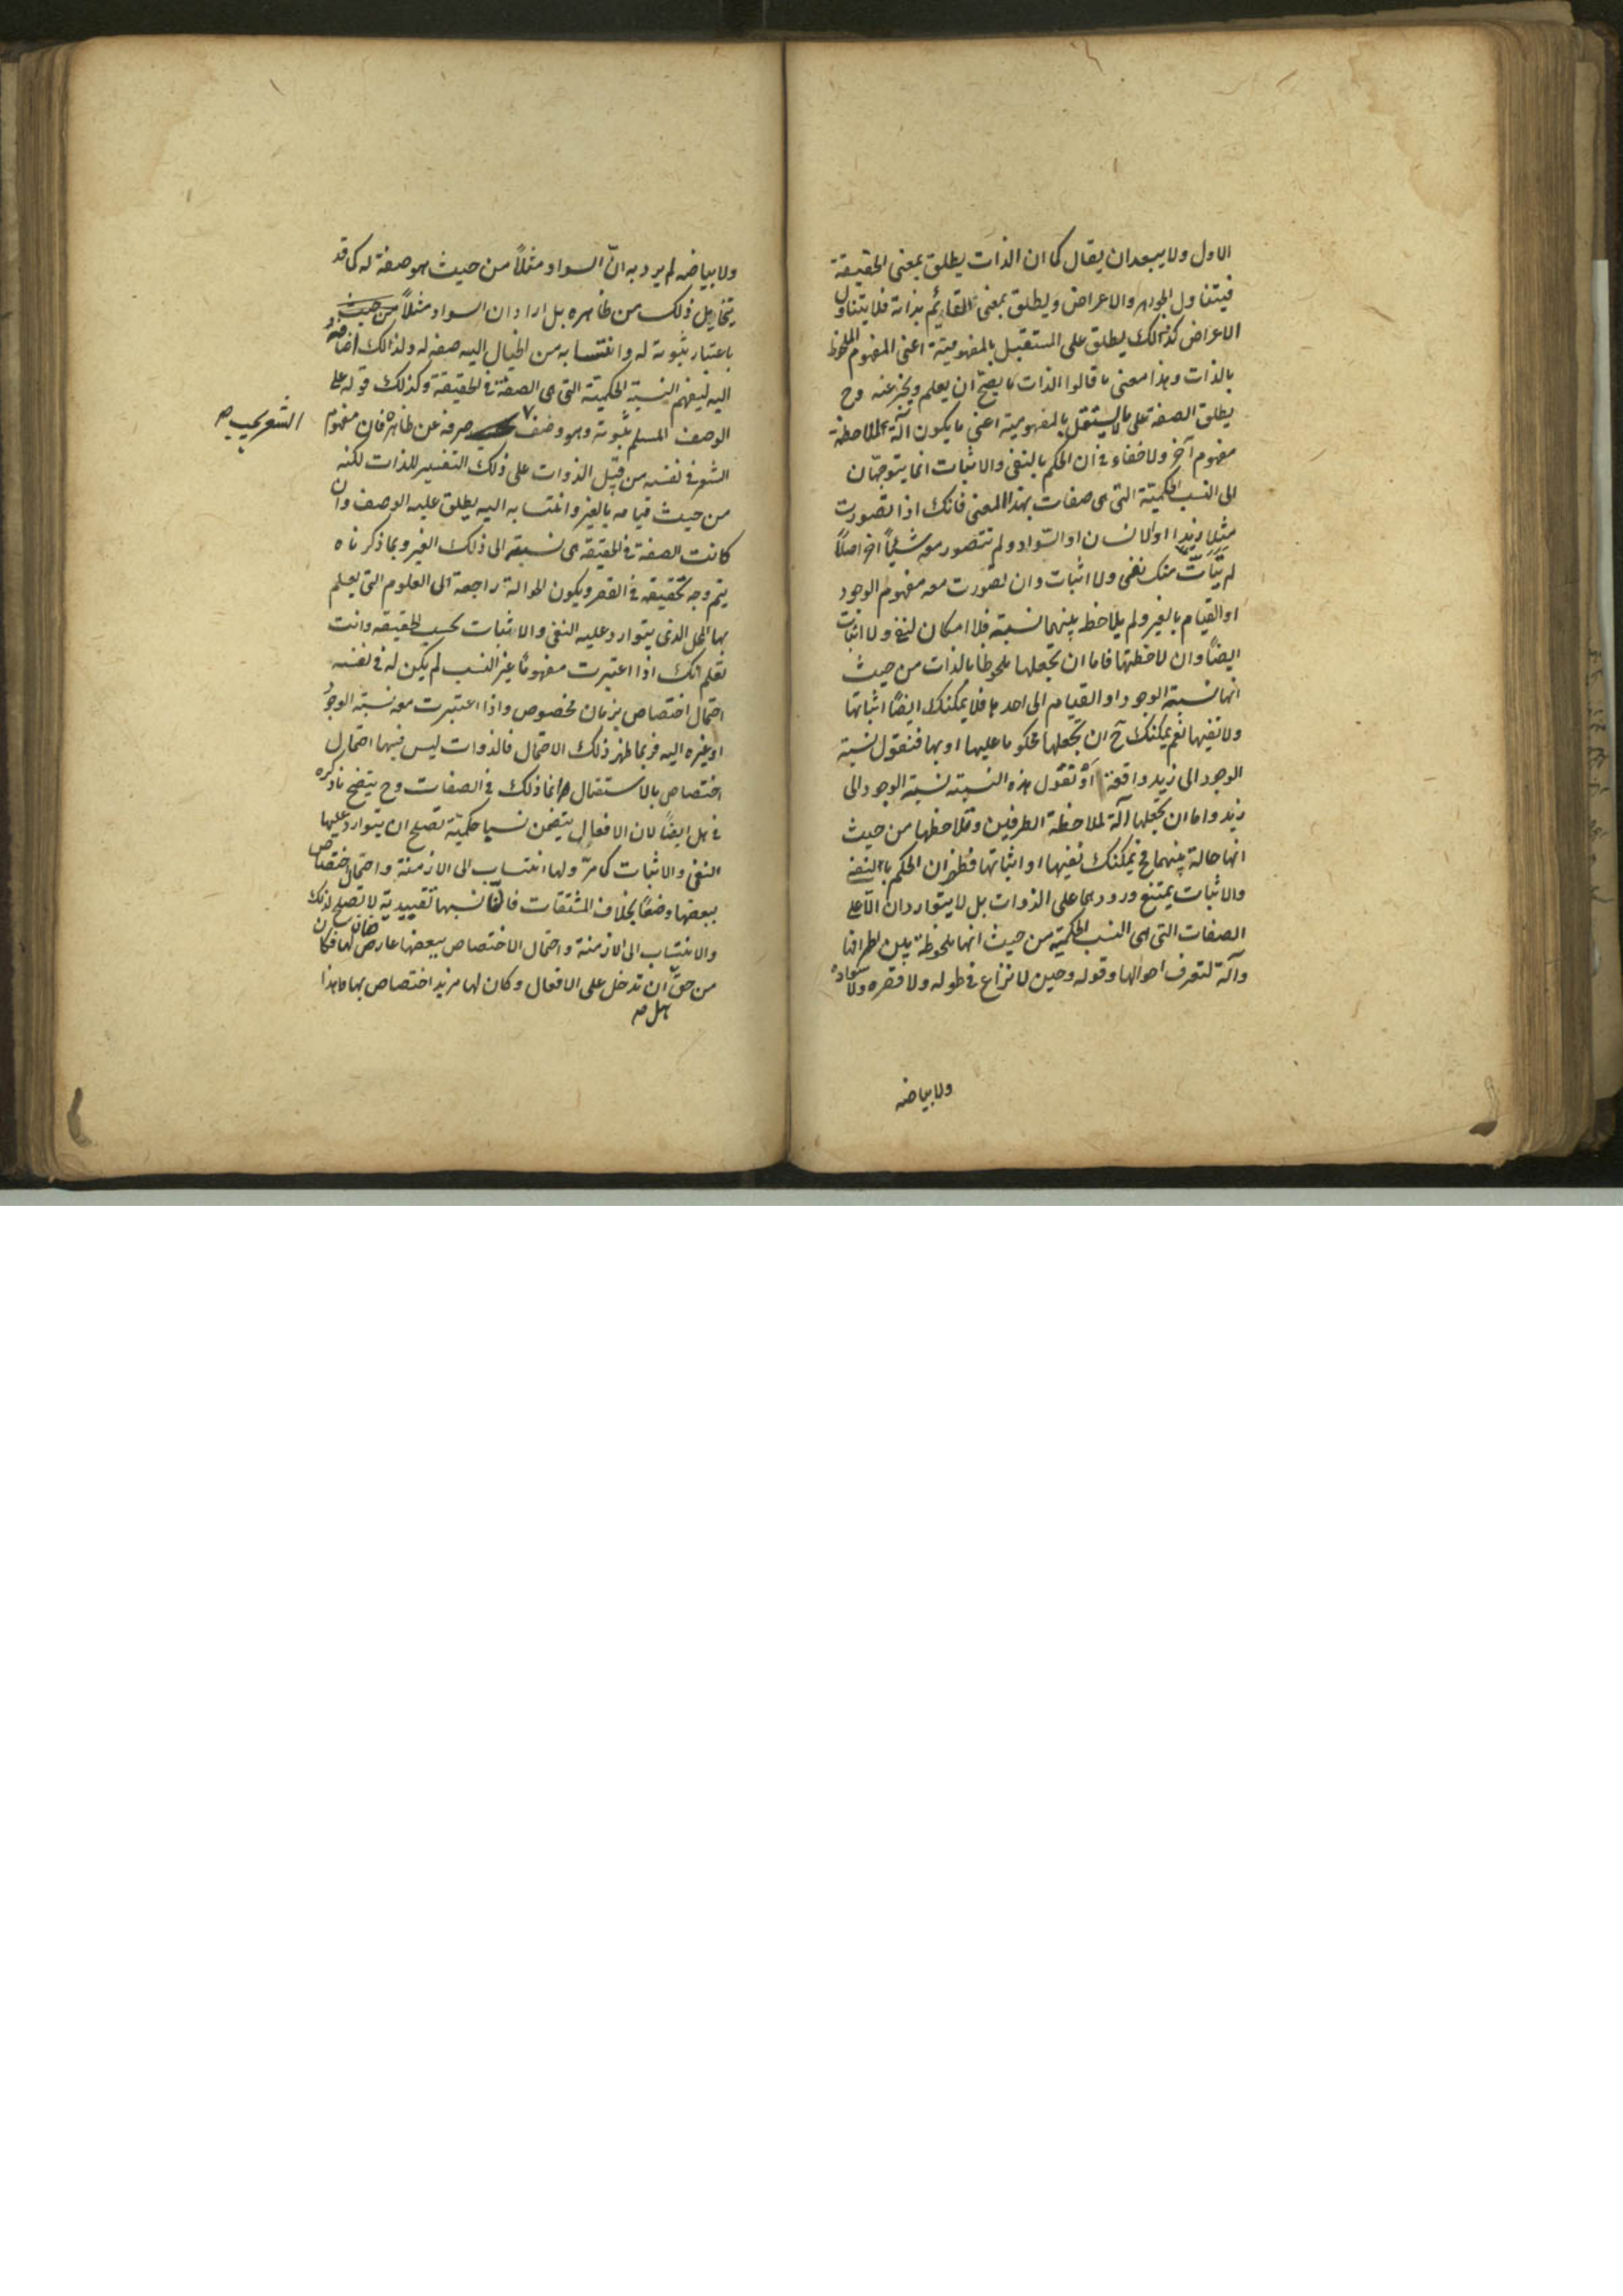 الاول ولا يبعد ان يقال كما ان الذات يطلق بمعنى الحقيقة
فيتناول الجوهر والاعراض ويطلق بمعنى القائم بذاته فلا يتناول
الاعراض كذلك يطلق على المستقل بالمفهومية اعنى المفهوم الملحوظ
بالذات وهذا معنى ما قالوا الذات ما يصح ان يعلم ويخبر عنه وح
يطلق الصفة على ما لا يستقل بالمفهومية اعنى ما يكون آلة لملاحظة
مفهوم آخر ولا خفاء فى ان الحكم بالنفى والاثبات انما يتوجهان
الى النسب الحكمية التى هى صفات بهذا المعنى فانك اذا تصورت
مثلا زيدا او الانسان او السواد ولم تتصور معه شيئاً آخر اصلاً
لم يتأت منك نفى ولا اثبات وان تصورت معه مفهوم الوجود
او القيام بالغير ولم يلاحظ بينهما نسبة فلا امكان لنفى ولا اثبات
ايضاً وان لاحظتها فاما ان تجعلها ملحوظا بالذات من حيث
انها نسبة الوجود او القيام الى احدهما فلا يمكنك ايضاً اثباتها
ولا نفيها نعم يمكنك ح ان تجعلها محكوما عليها او بها فنقول نسبة
الوجود الى زيد واقعة او تقول هذه النسبة نسبة الوجود الى
زيد واما ان تجعلها آلة لملاحظة الطرفين وتلاحظها من حيث
انها حالة بينهما فح يمكنك نفيها او اثباتها فظهر ان الحكم بالنفى
والاثبات يمتنع ورودهما على الذوات بل لا يتواردان الا على
الصفات التى هى النسب الحكمية من حيث انها ملحوظة بين طرفها
وآلة لتعرف احوالها وقوله وحين لا نزاع فى طوله ولا قصره ولا سواده
ولا بياضه
ولا بياضه لم يرد به انّ السواد مثلاً من حيث هو صفة له كما قد
يتخايل ذلك من ظاهره بل اراد ان السواد مثلاً من حيث
باعتبار ثبوته له وانتسابه من الخيال اليه صفة له ولذلك اضافه
اليه ليفهم النسبة الحكمية التى هى الصفة فى الحقيقة وكذلك قوله على
الوصف المسلم ثبوته وهو وصف صرفه عن ظاهره فان مفهوم
الشعر بحسب
الشعر فى نفسه من قبل الذوات على ذلك التفسير للذات لكنه
من حيث قيامه بالغير وانتسابه اليه يطلق عليه الوصف وان
كانت الصفة فى الحقيقة هى نسبته الى ذلك الغير وبما ذكرناه
يتم وجه تحقيقه فى القصر ويكون الحوالة راجعة الى العلوم التى يعلم
بها المحل الذى يتوارد عليه النفى والاثبات بحسب الحقيقة وانت
تعلم انك اذا اعتبرت مفهوماً غير النسب لم يكن له فى نفسه
احتمال اختصاص بزمان مخصوص واذا اعتبرت معه نسبة الوجود
او غيره اليه فربما ظهر ذلك الاحتمال فالذوات ليس فيها احتمال
اختصاص بالاستقبال وانما ذلك فى الصفات وح يتضح ما ذكره
فى هل ايضاً لان الافعال يتضمن نسبا حكمية تصلح ان يتوارد عليها
النفى والاثبات كما مرّ ولها انتساب الى الازمنة واحتمال اختصاص
ببعضها وضعاً بخلاف المشتقات فان نسبها تقييدية لا تصلح لذلك
والانتساب الى الازمنة واحتمال الاختصاص ببعضها عارض لها فكان
من حقّ ان تدخل على الافعال وكان لها مزيد اختصاص بها ما هذا
هل